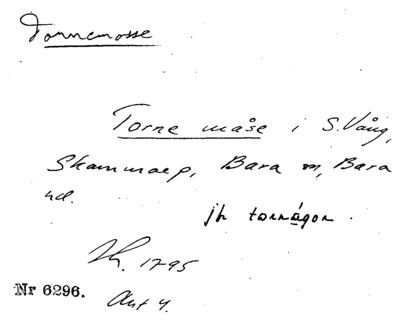 Tornemosse
Torne måse i S. Vång,
Skammarp, Bara sn, Bara
hd.
jfr tornågon.
Lh. 1795
Nr 6296.
Akt 4.